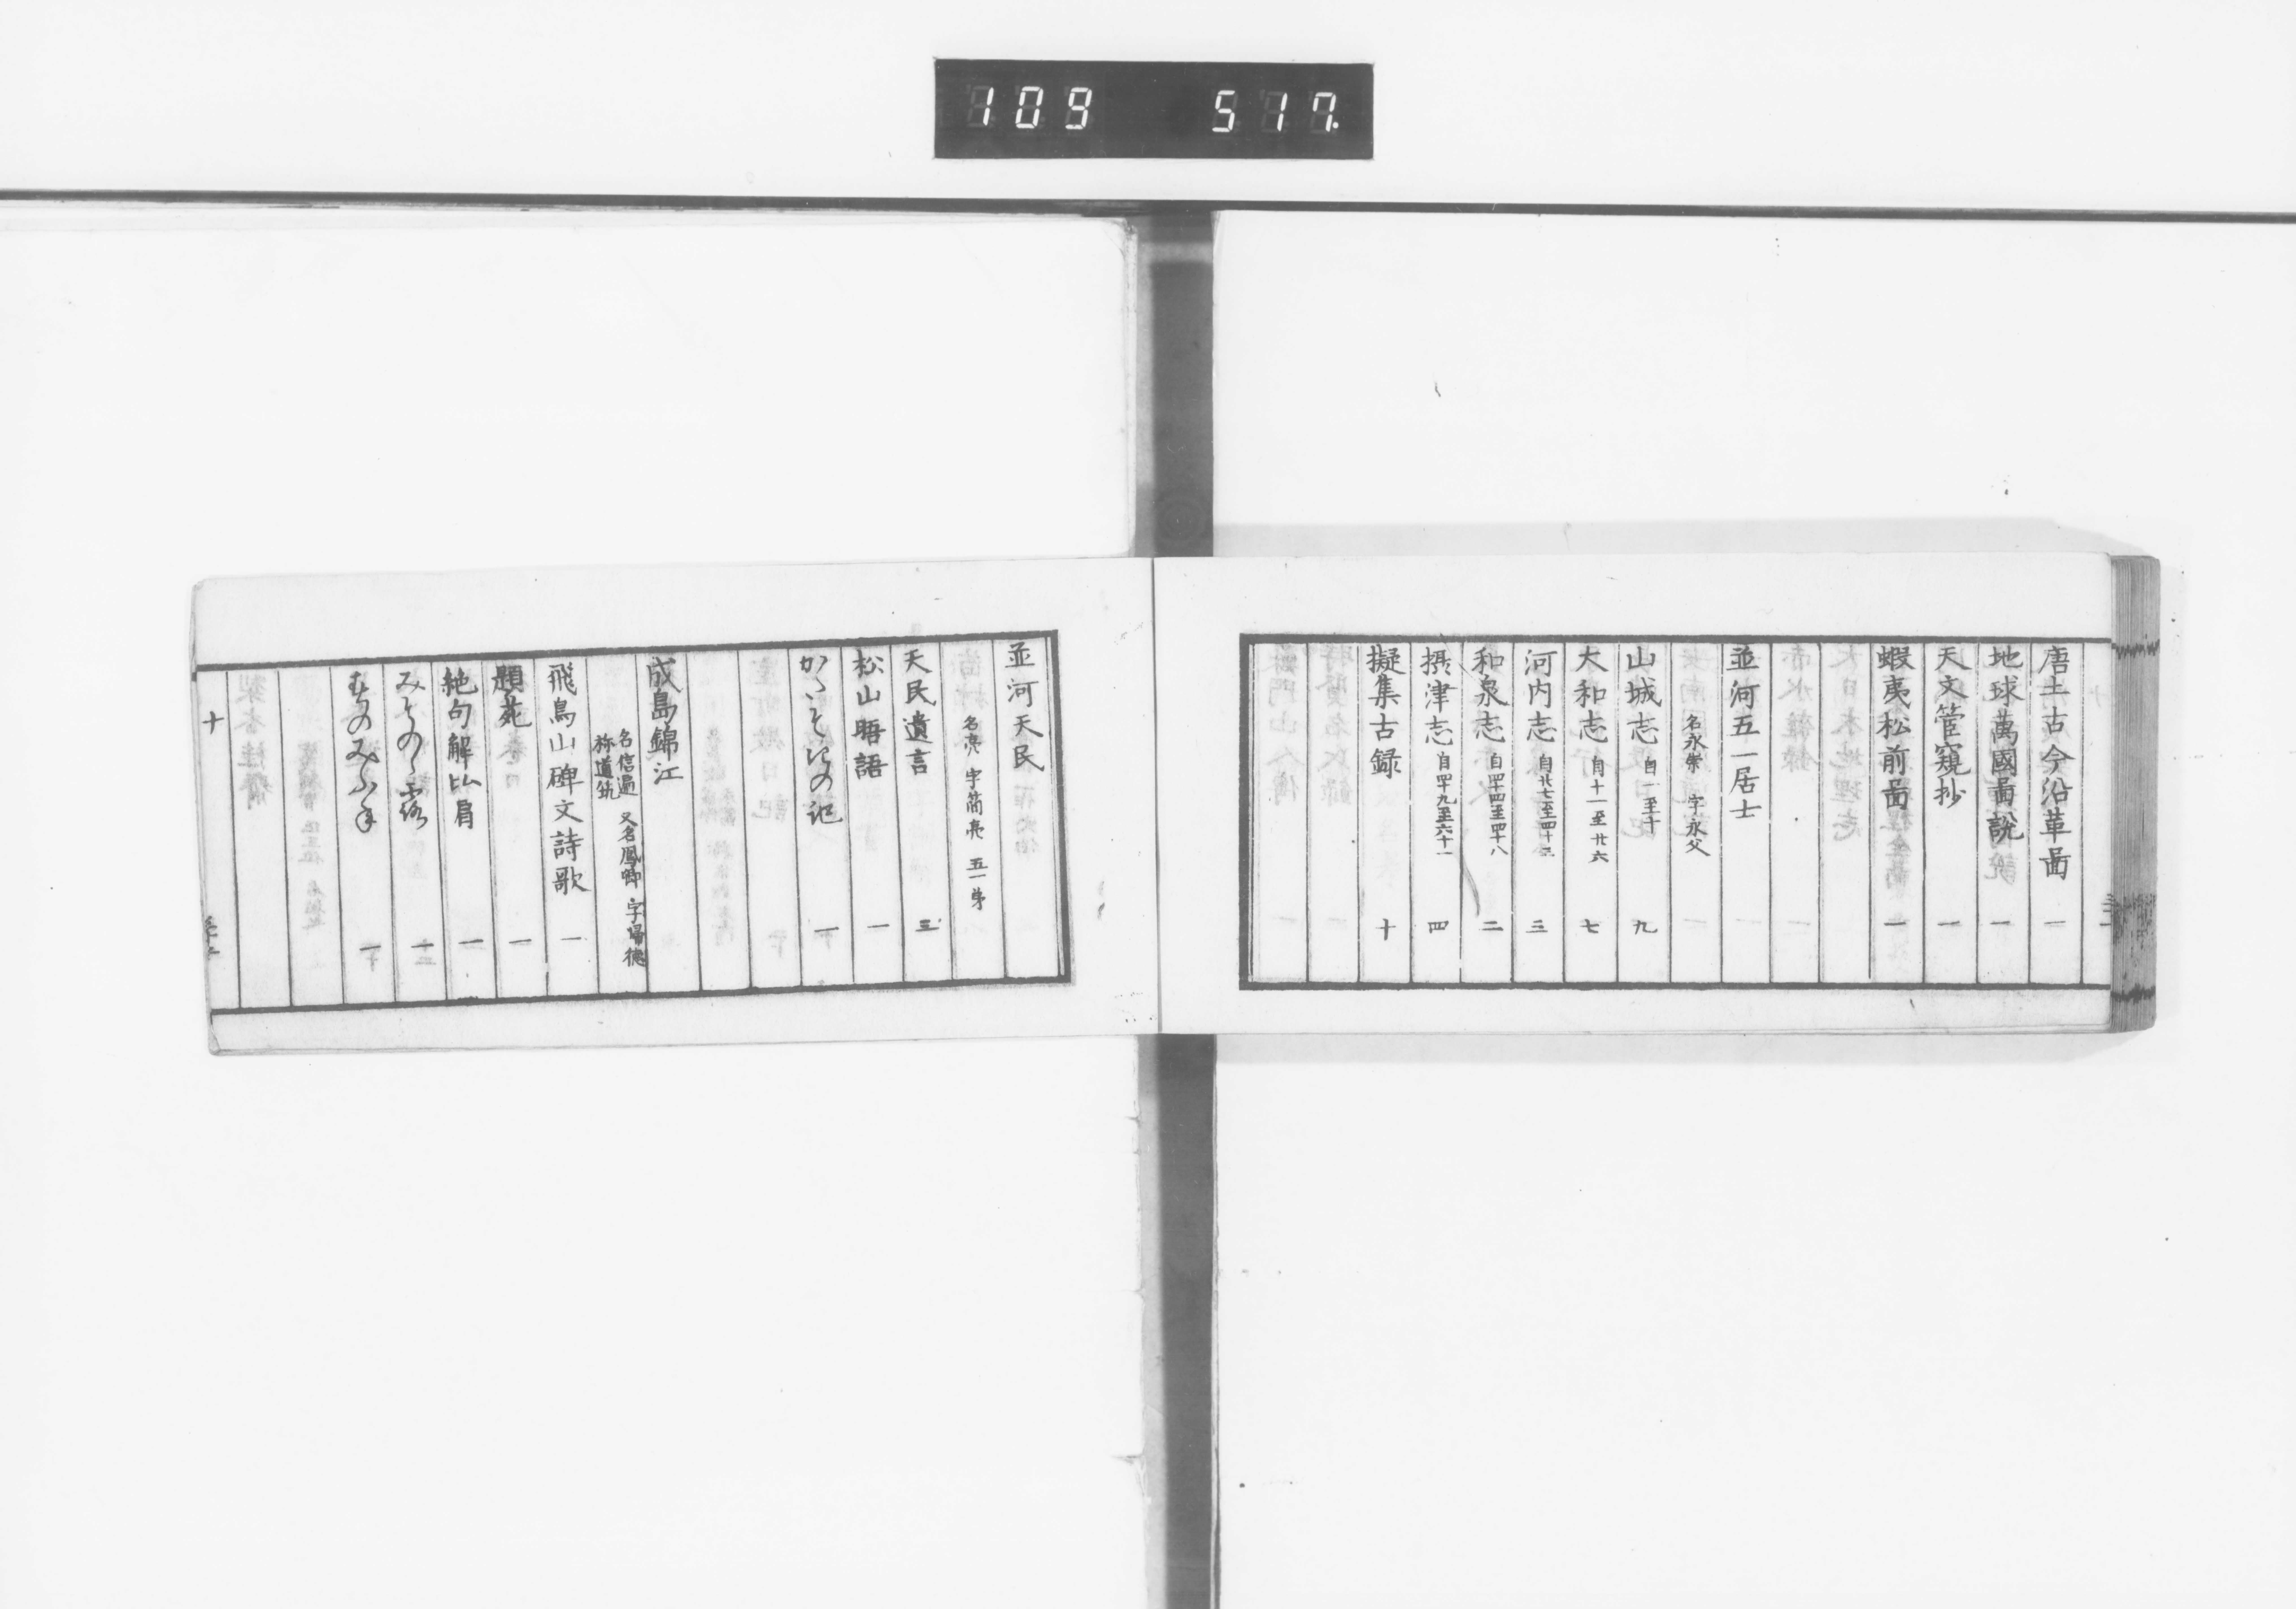 109 517.
唐土古今沿革啚 一
地球萬國啚説 一
天文管窺抄 一
蝦夷松前啚 一
並河五一居士
名永崇 字永父
山城志 自一至十 九
大和志 自十一至廿六 七
河内志 自廿七至四十三 三
和泉志 自四十四至四十八 二
摂津志 自四十九至六十一 四
擬集古録 十
並河天民
名亮 字簡亮 五一弟
天民遺言 三
松山晤語 一
かいそいの記 一
成島錦江
名信遍 又名鳳卿 字歸德
称道筑
飛鳥山碑文詩歌 一
題苑 一
絶句解比肩 一
みその 十二
のみふ 一
十